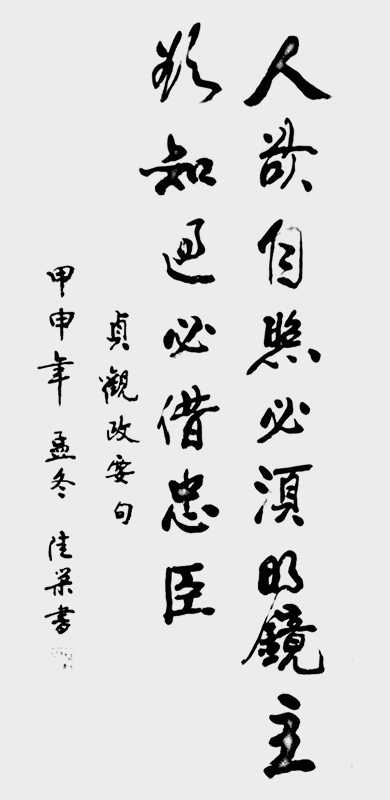 人欲自照必須明鏡主
欲知過必借忠臣
貞觀政要句
甲申年孟冬 書